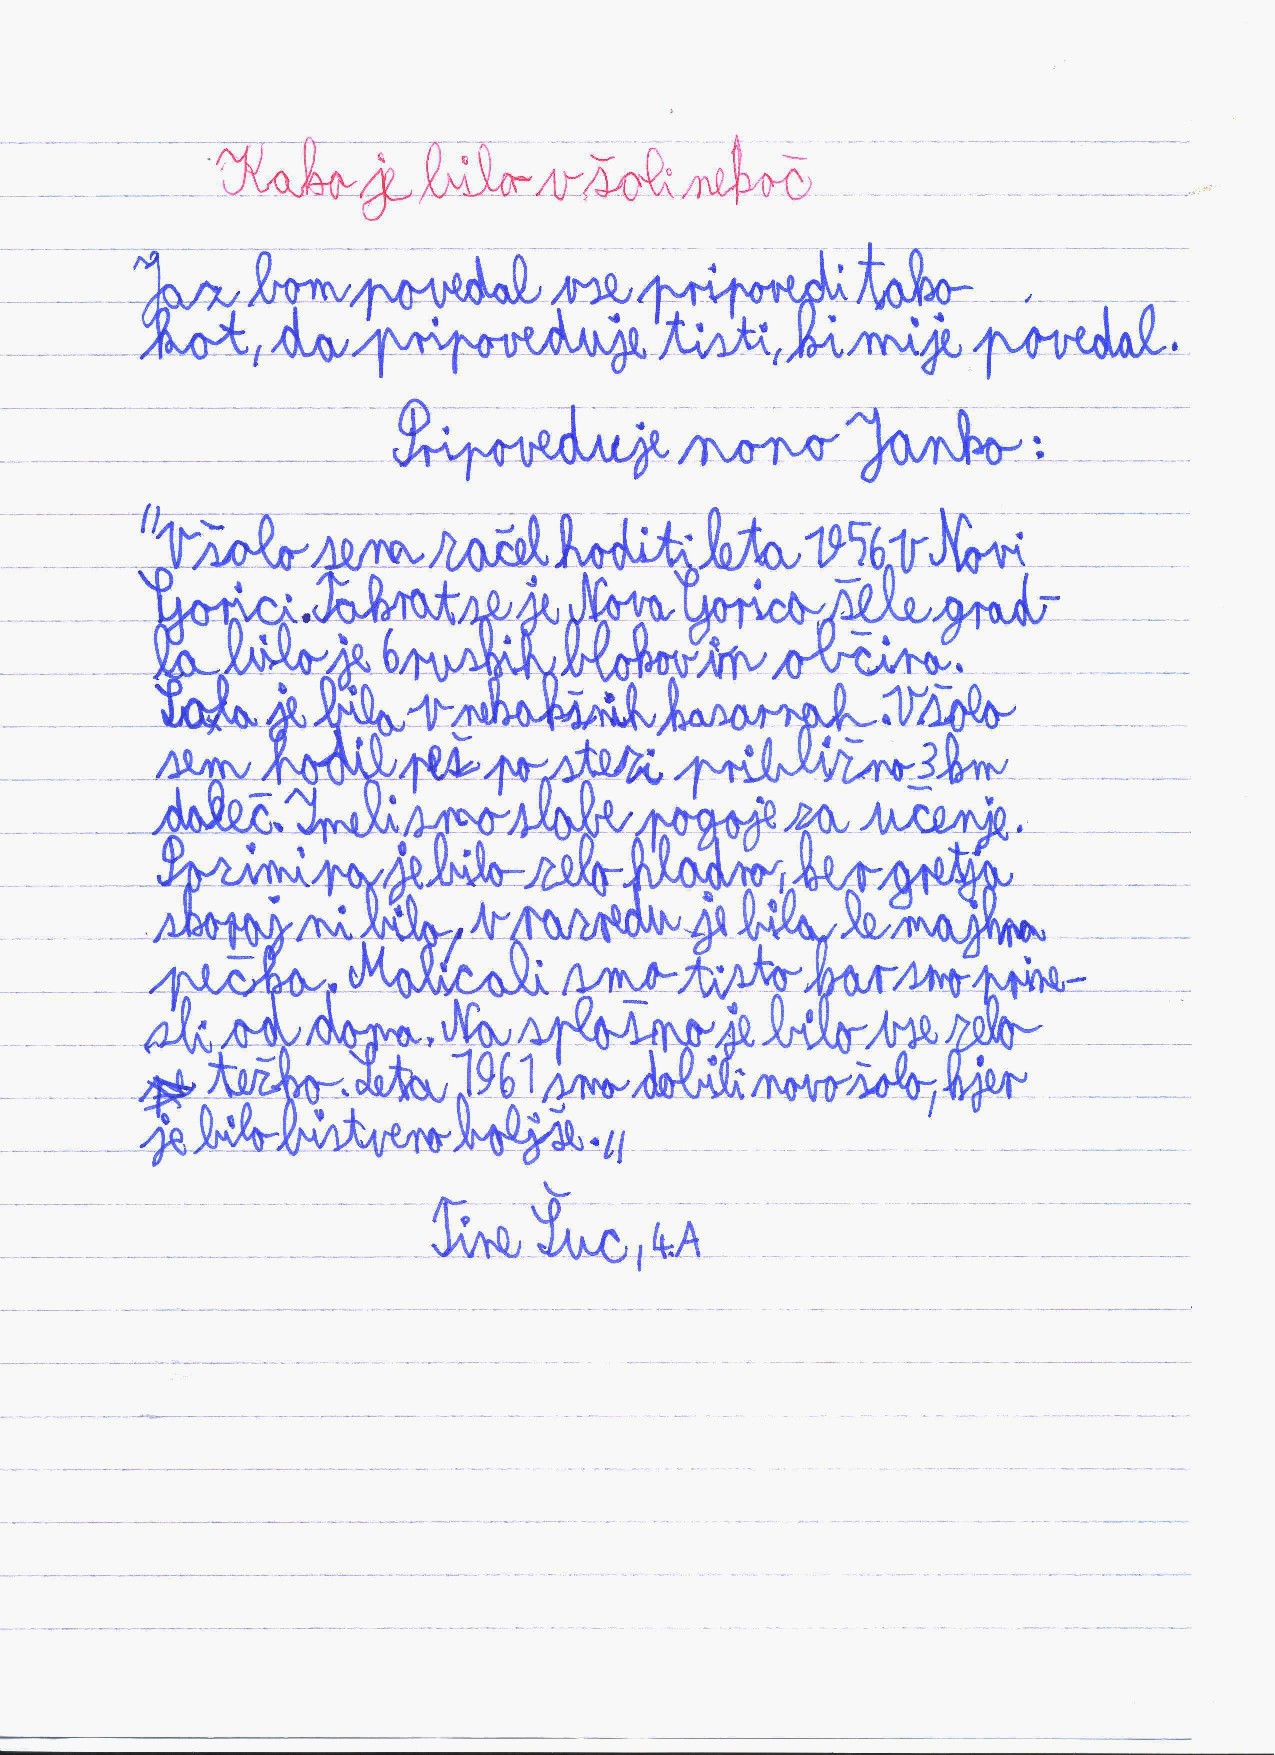 Kako je bilo v šoli nekoč
Jaz bom povedal vse pripovedi tako
kot, da pripoveduje tisti, ki mi je povedal.
Pripoveduje nono Janko:
"V šolo sem začel hoditi leta 1956 v Novi
Gorici. Takrat se je Nova Gorica šele grad-
la bilo je 6 ruskih blokov in občina.
Šola je bila v nekakšnih kasarnah. V šolo
sem hodil peš po stezi približno 3 km
daleč. Imeli smo slabe pogoje za učenje.
Pozimi pa je bilo zelo hladno, ker gretja
skoraj ni bilo, v razredu je bila le majhna
pečka. Malicali smo tisto kar smo prine-
sli od doma. Na splošno je bilo vse zelo
težko. Leta 1961 smo dobili novo šolo, kjer
je bilo bistveno boljše."
Tine Šuc, 4.A